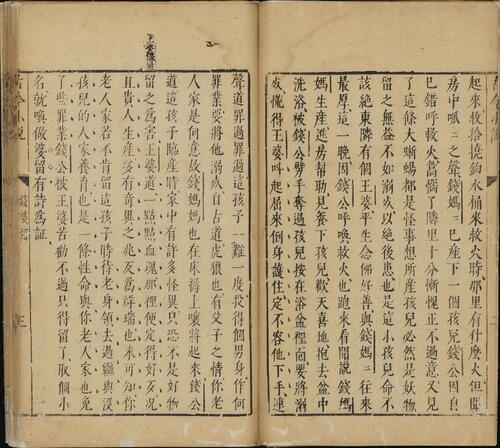 起來收拾撓鈎水桶來救火時那里有什麽火但聞
房中呱〻之聲錢媽〻已産下一個孩兒錢公因自
已錯呼救火蒿惱了隣里十分慚愧正不過意又見
了這條大蜥蜴都是怪事想所產孩兒必然是妖物
留之無益不如溺死以絶後患也是這小孩兒命不
該絶東隣有個王婆平生念佛好善與錢媽〻往來
最厚這一晚因錢公呼喚救火也跑來看聞說錢媽
媽生產進房幫助見養下孩兒歡天喜地抱去盆中
洗浴被錢公劈手奪過孩兒按在浴盆裡面要將溺
死慌得王婆叫起屈來倒身護住定不容他下手連
聲道罪過罪過這孩子一難一度投得個男身作何
罪業要將他溺死自古道虎狼也有父子之情你老
人家是何意故錢媽媽也在床褥上嚷將起來錢公
道這孩子臨產時家中有許多怪異只恐不是好物
留之爲害王婆道一點點血塊那裡便定得好歹况
且貴人生產多有奇異之兆反爲祥瑞也未可知你
老人家若不肯留這孩子時待老身領去過繼與没
孩兒的人家養育也是一條性命與你老人家也免
了些罪業錢公被王婆苦勸不過只得留了取個小
名就喚做婆留有詩爲証
古今小說